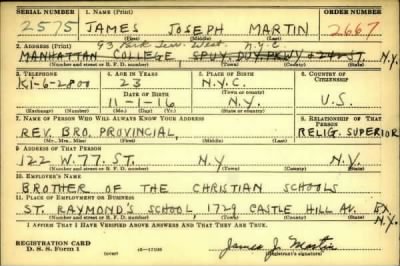 SERIAL NUMBER 1. NAME (Print) ORDER NUMBER
2575 JAMES JOSEPH MARTIN 2667
(First) (Middle) (Last)
2. ADDRESS (Print) 93 Park Terr. West, N.Y.C.
MANHATTAN COLLEGE SPUY. DUY. PKWY & 242 ST. N.Y.
(Number and street or R. F. D. number) (Town) (County) (State)
3. TELEPHONE 4. AGE IN YEARS 5. PLACE OF BIRTH 6. COUNTRY OF CITIZENSHIP
Ki-6-2800 23 N.Y.C.
DATE OF BIRTH (Town or county)
11-1-16 N.Y. U.S.
(Exchange) (Number) (Mo.) (Day) (Yr.) (State or country)
7. NAME OF PERSON WHO WILL ALWAYS KNOW YOUR ADDRESS 8. RELATIONSHIP OF THAT PERSON
REV. BRO. PROVINCIAL, RELIG. SUPERIOR
(Mr., Mrs., Miss) (First) (Middle) (Last)
9. ADDRESS OF THAT PERSON
122 W. 77. ST. N.Y. N.Y.
(Number and street or R. F. D. number) (Town) (County) (State)
10. EMPLOYER'S NAME
BROTHER OF THE CHRISTIAN SCHOOLS
11. PLACE OF EMPLOYMENT OR BUSINESS
ST. RAYMOND'S SCHOOL, 1729 CASTLE HILL AV. BX N.Y.
(Number and street or R. F. D. number) (Town) (County) (State)
I AFFIRM THAT I HAVE VERIFIED ABOVE ANSWERS AND THAT THEY ARE TRUE.
REGISTRATION CARD
D. S. S. Form 1 16-17105
James J. Martin
(Registrant's signature)